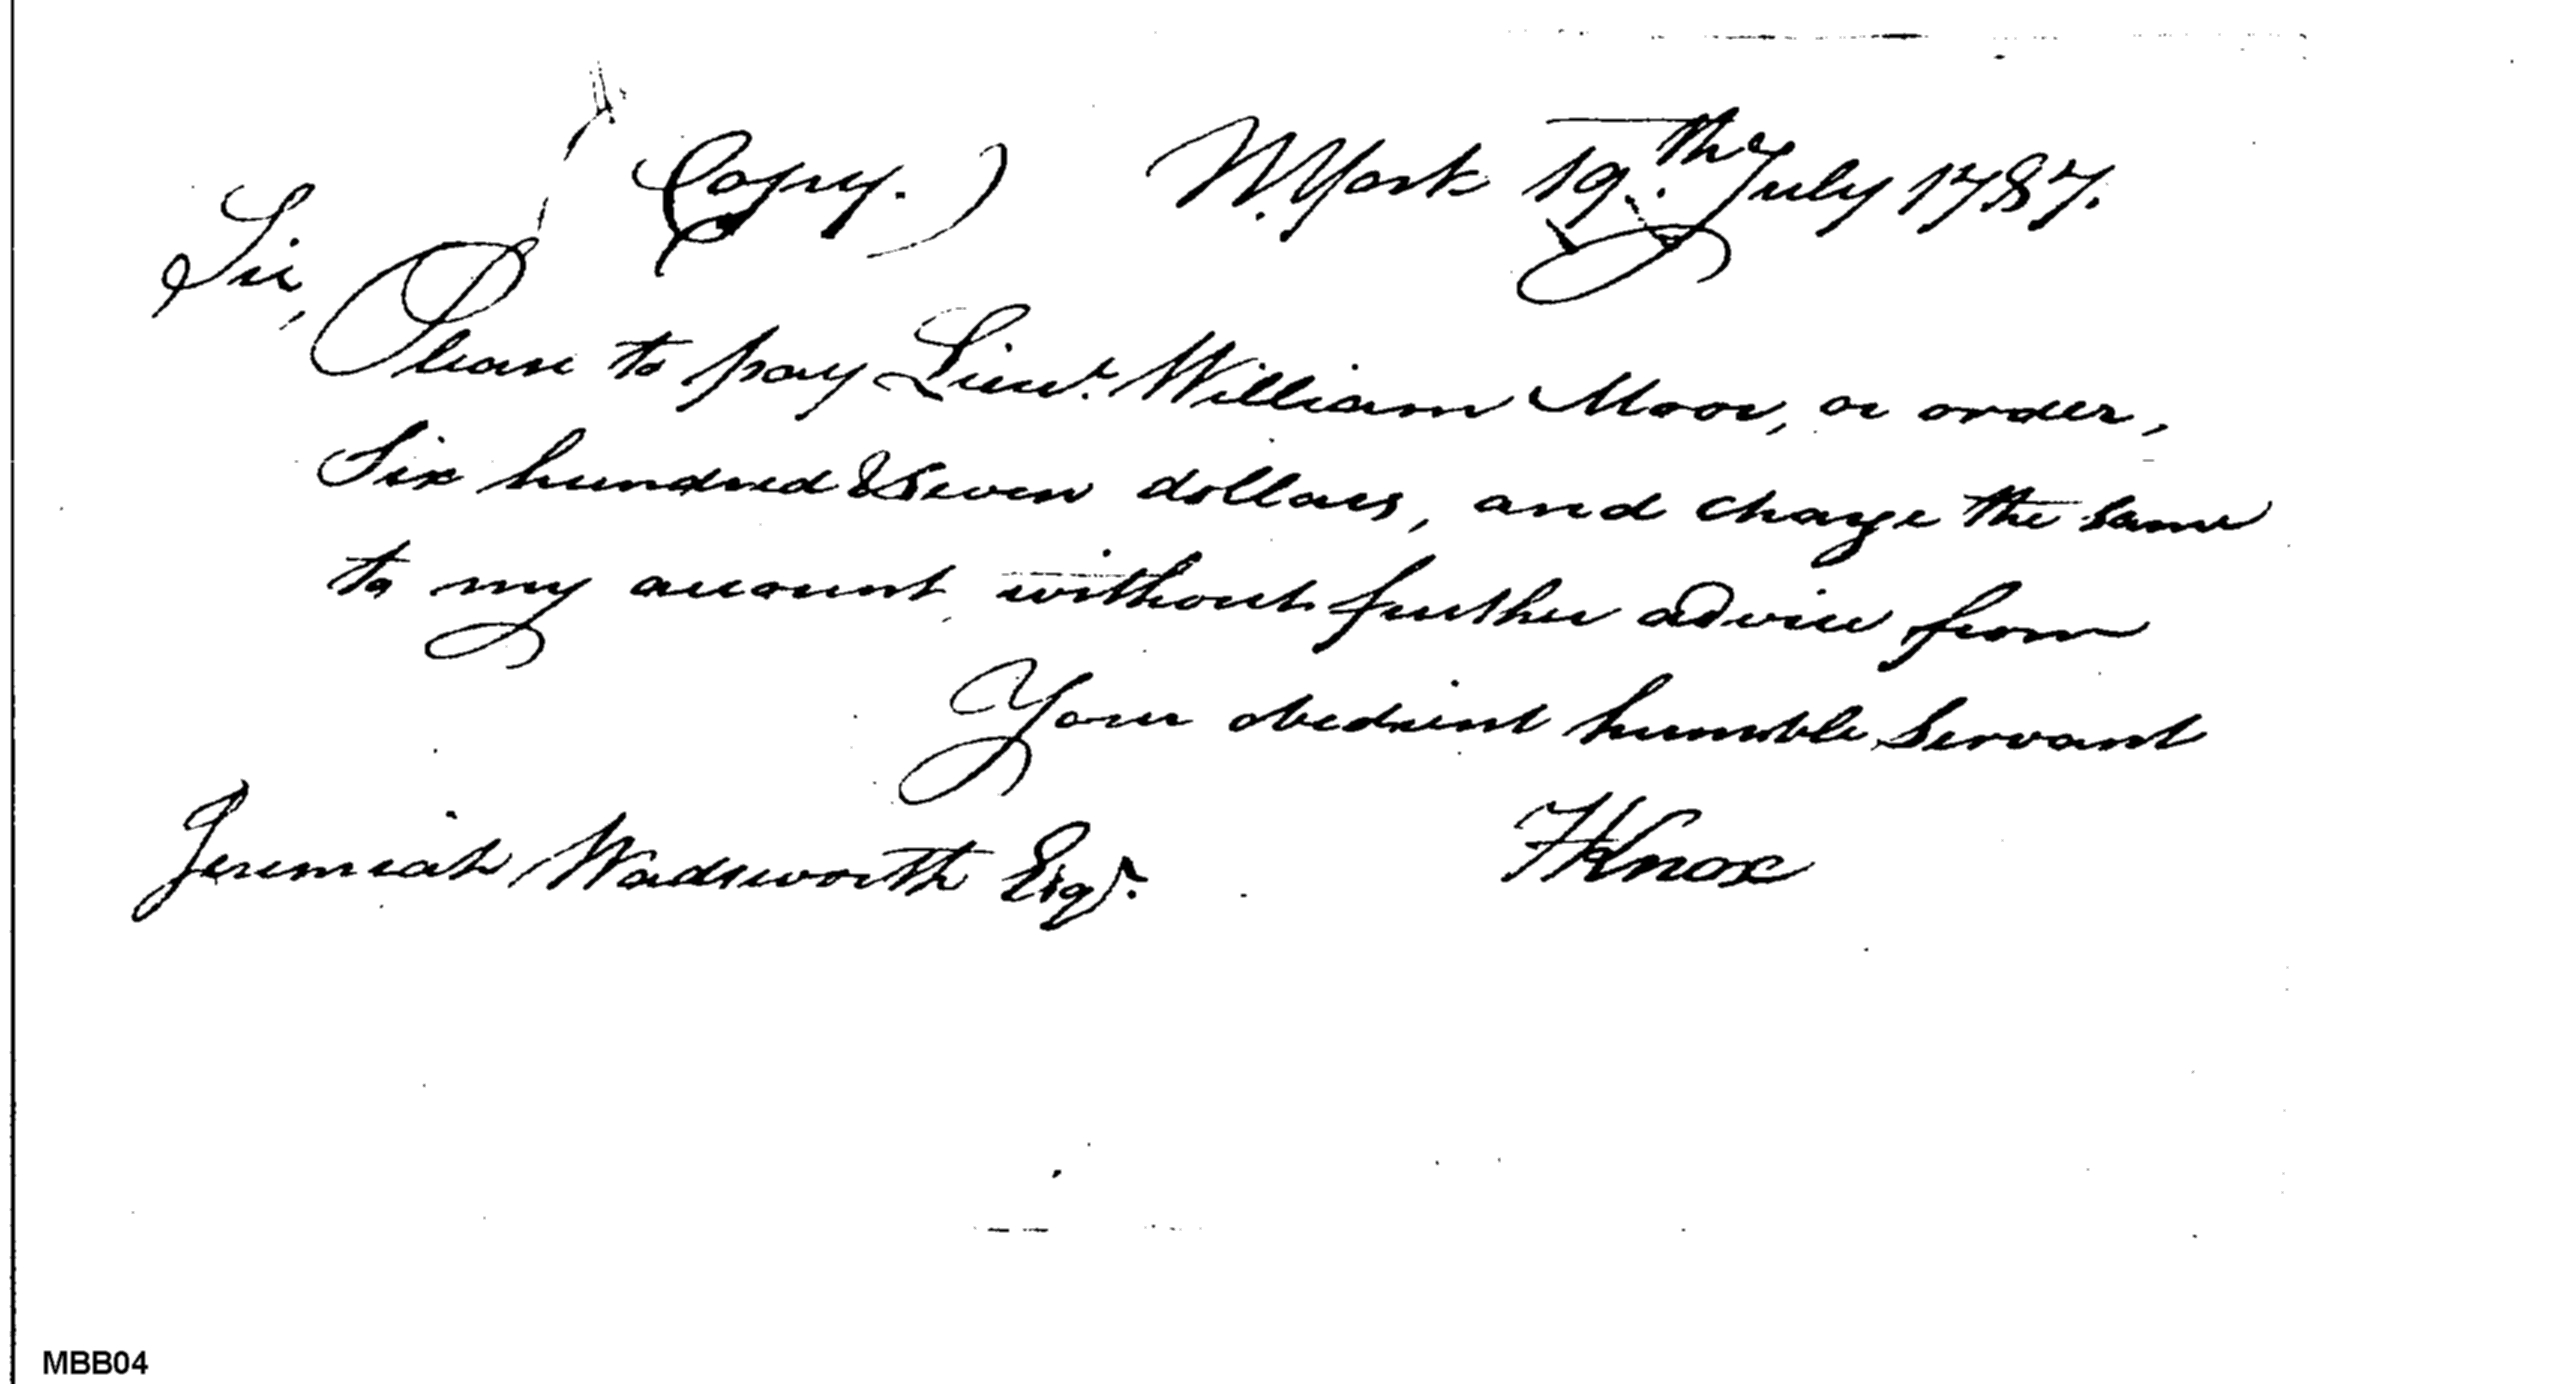 Copy.) N. York 19.th July 1787.
Sir,
Please to pay Lieut. William Moor, or order,
Six hundred & Seven dollars, and charge the same
to my account without further advice from
Your obedient humble Servant
Jeremiah Wadsworth Esqr. HKnox
MBB04